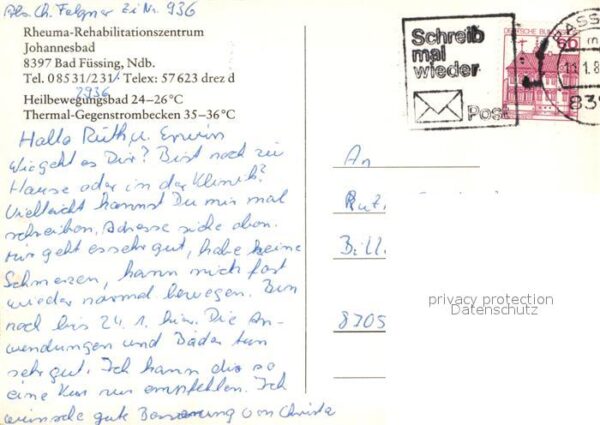 Abs. Ch. Felgner Zi Nr. 936
Rheuma-Rehabilitationszentrum
Johannesbad
8397 Bad Füssing, Ndb.
Tel. 08531/231/ Telex: 57623 drez d
2936
Heilbewegungsbad 24–26°C
Thermal-Gegenstrombecken 35–36°C
Hallo Ruth u. Erwin
Wie geht es Dir? Bist noch zu
Hause oder in der Klinik?
Vielleicht kannst Du mir mal
schreiben, Adresse siehe oben.
Mir geht es sehr gut, habe keine
Schmerzen, kann mich fast
wieder normal bewegen. Bin
noch bis 24.1. hier. Die An-
wendungen und Bäder tun
sehr gut. Ich kann die so
eine Kur nur empfehlen. Ich
wünsche gute von Christa
Schreib
mal
wieder
Post
DEUTSCHE BUNDESPOST
60
PASS
11.1.8
839
An
Rut
Bill
8705
privacy protection
Datenschutz